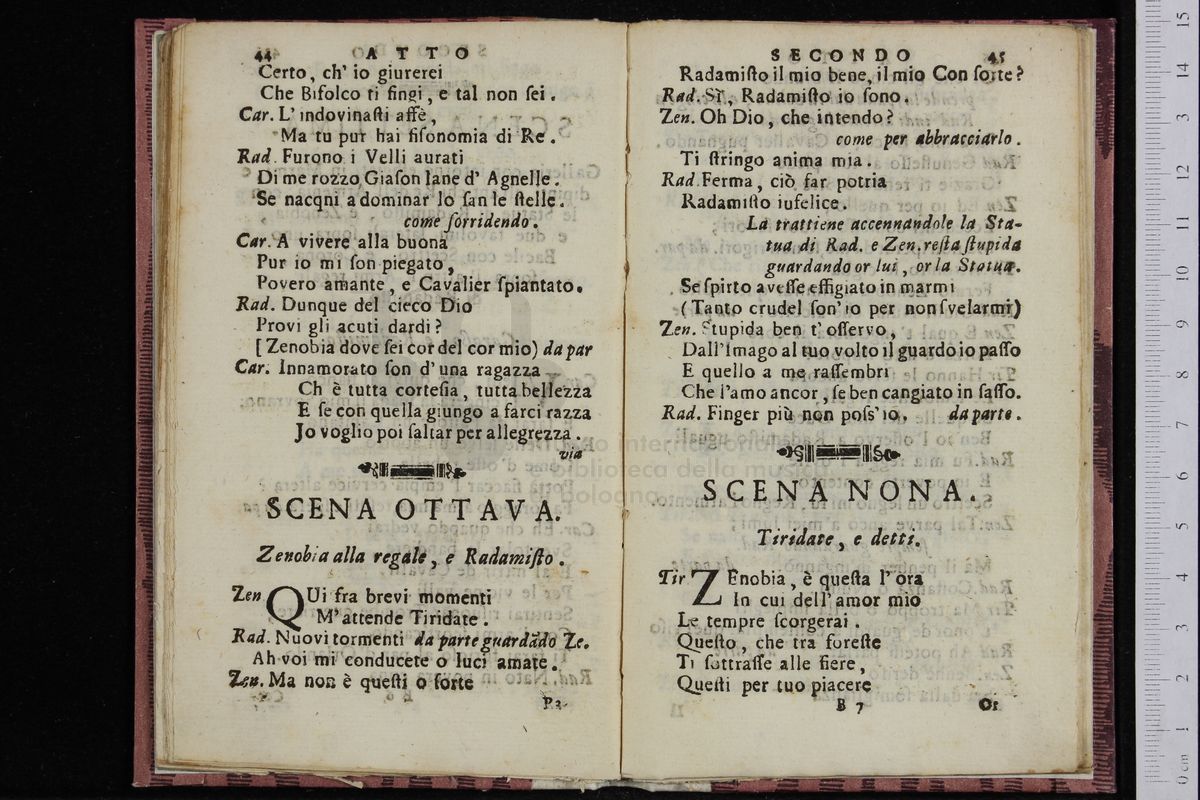 44 ATTO
Certo, ch' io giurerei
Che Bifolco ti fingi, e tal non sei.
Car. L' indovinaſti affè,
Ma tu pur hai fiſonomia di Re.
Rad. Furono i Velli aurati
Di me rozzo Giaſon lane d' Agnelle.
Se nacqni a dominar lo ſan le ſtelle.
come ſorridendo.
Car. A vivere alla buona
Pur io mi ſon piegato,
Povero amante, e Cavalier ſpiantato.
Rad. Dunque del cieco Dio
Provi gli acuti dardi?
[Zenobia dove ſei cor del cor mio) da par
Car. Innamorato ſon d' una ragazza
Ch è tutta corteſia, tutta bellezza
E ſe con quella giungo a farci razza
Jo voglio poi ſaltar per allegrezza.
via
SCENA OTTAVA.
Zenobia alla regale, e Radamiſto.
Zen QUi fra brevi momenti
M' attende Tiridate.
Rad. Nuovi tormenti da parte guardãdo Ze.
Ah voi mi conducete o luci amate.
Zen. Ma non è queſti o ſorte
Ra-
SECONDO 45
Radamiſto il mio bene, il mio Con ſorte?
Rad. Sì, Radamiſto io ſono.
Zen. Oh Dio, che intendo?
come per abbracciarlo.
Ti ſtringo anima mia.
Rad. Ferma, ciò far potria
Radamiſto iufelice.
La trattiene accennandole la Sta-
tua di Rad. e Zen. reſta ſtupida
guardando or lui, or la Statua.
Se ſpirto aveſſe effigiato in marmi
(Tanto crudel ſon' io per non ſvelarmi)
Zen. Stupida ben t' oſſervo,
Dall'Imago al tuo volto il guardo io paſſo
E quello a me raſſembri
Che l'amo ancor, ſe ben cangiato in ſaſſo.
Rad. Finger più non poſs' io. da parte.
SCENA NONA.
Tiridate, e detti.
Tir ZEnobia, è queſta l' ora
In cui dell' amor mio
Le tempre ſcorgerai.
Queſto, che tra foreſte
Ti ſottraſſe alle fiere,
Queſti per tuo piacere
B 7 Or